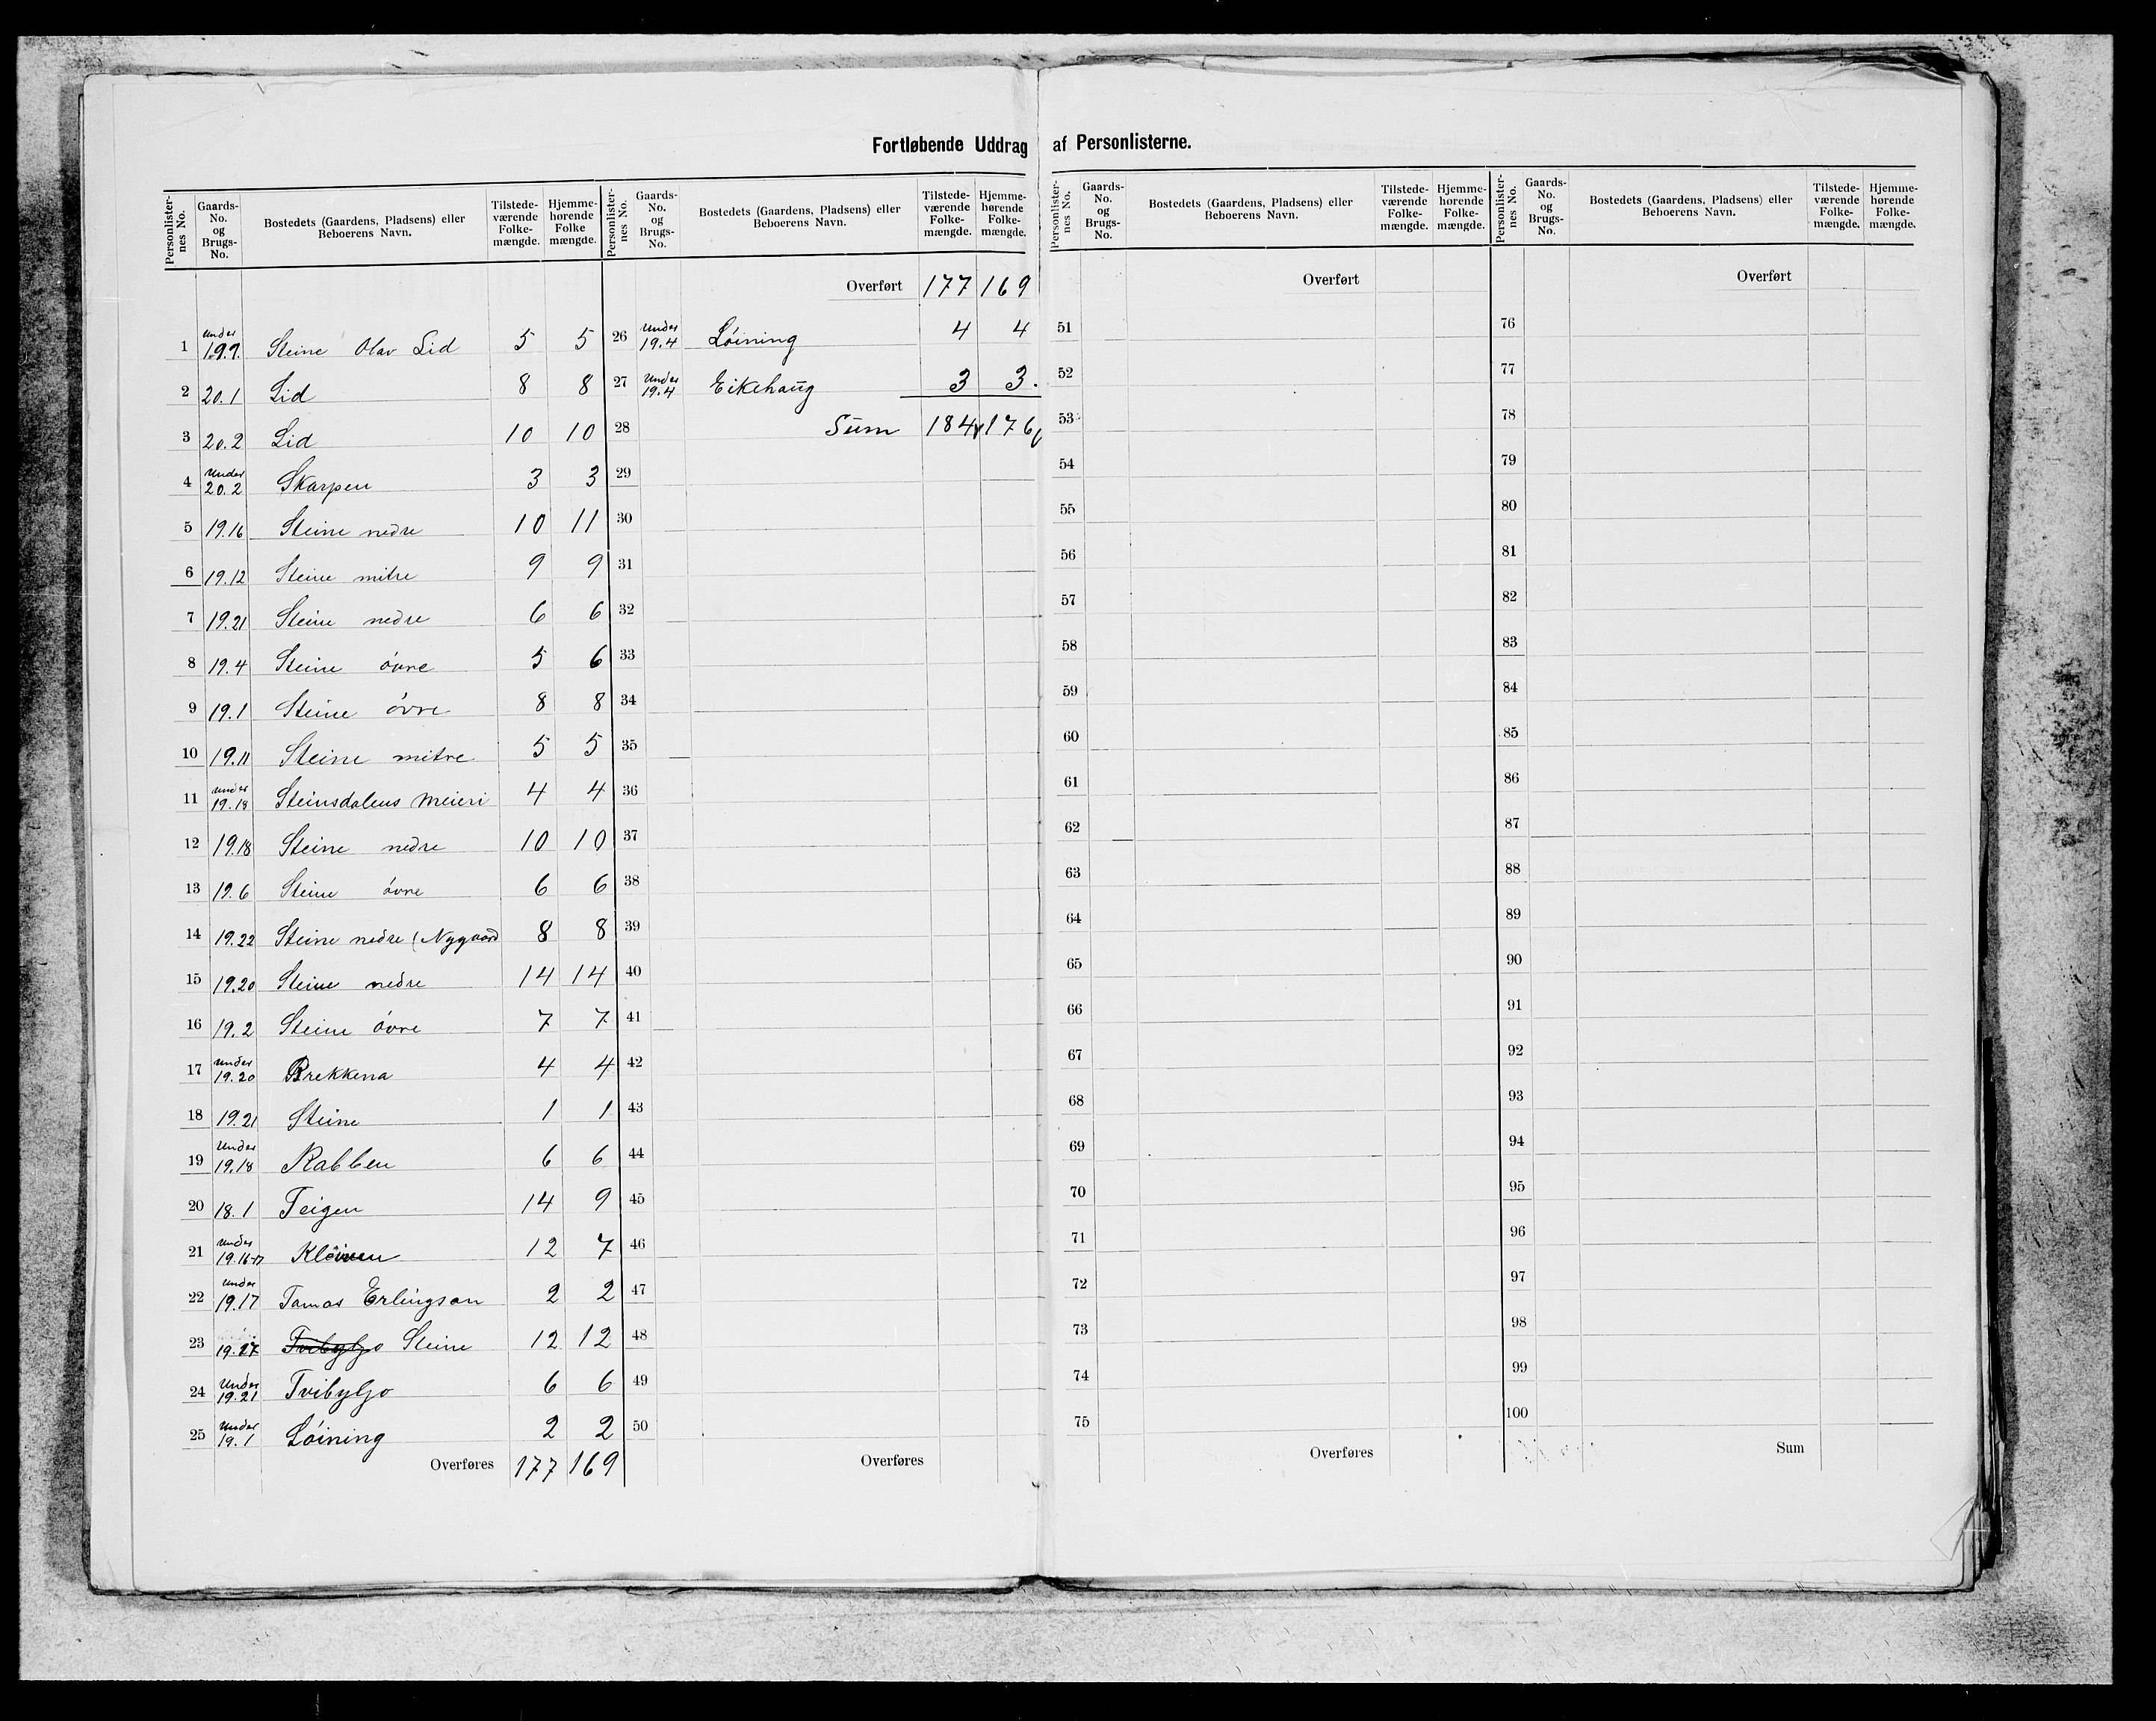 Fortløbende Uddrag af Personlisterne.
Personlisternes No. Gaards-No. og Brugs-No. Bostedets (Gaardens, Pladsens) eller Beboerens Navn. Tilstedeværende Folkemængde. Hjemmehørende Folke mængde.
1 Under 19.9. Steine Olav Lid 5 5
2 20.1 Lid 8 8
3 20.2 Lid 10 10
4 Under 20.2 Skarpen 3 3
5 19.16 Steine nedre 10 11
6 19.12 Steine mitre 9 9
7 19.21 Steine nedre 6 6
8 19.4 Steine óvre 5 6
9 19.1 Steine óvre 8 8
10 19.11 Steine mitre 5 5
11 under 19.18 Steinsdalens Meieri 4 4
12 19.18 Steine nedre 10 10
13 19.6 Steine óvre 6 6
14 19.22 Steine nedre (Nygaard 8 8
15 19.20 Steine nedre 14 14
16 19.2 Steine óvre 7 7
17 Under 19.20 Brekkena 4 4
18 19.21 Steine 1 1
19 Under 19.18 Rabben 6 6
20 18.1 Teigen 14 9
21 Under 19.16-17 Kleiven 12 7
22 Under 19.17 Tomas Erlingson 2 2
23 19.17 Tvibyljo Steine 12 12
24 Under 19.21 Tvibyljo 6 6
25 Under 19.1 Lóining 2 2
Overføres 177 169
Personlisternes No. Gaards-No. og Brugs-No. Bostedets (Gaardens, Pladsens) eller Beboerens Navn. Tilstedeværende Folkemængde. Hjemmehørende Folkemængde.
Overført 177 169
26 Under 19.4 Lóining 4 4
27 Under 19.4 Eikehaug 3 3.
28 Sum 184 176
29
30
31
32
33
34
35
36
37
38
39
40
41
42
43
44
45
46
47
48
49
50
Overføres
Personlisternes No. Gaards-No. og Brugs-No. Bostedets (Gaardens, Pladsens) eller Beboerens Navn. Tilstedeværende Folkemængde. Hjemmehørende Folkemængde.
Overført
51
52
53
54
55
56
57
58
59
60
61
62
63
64
65
66
67
68
69
70
71
72
73
74
75
Overføres
Personlisternes No. Gaards-No. og Brugs-No. Bostedets (Gaardens, Pladsens) eller Beboerens Navn. Tilstedeværende Folkemængde. Hjemmehørende Folkemængde.
Overført
76
77
78
79
80
81
82
83
84
85
86
87
88
89
90
91
92
93
94
95
96
97
98
99
100
Sum